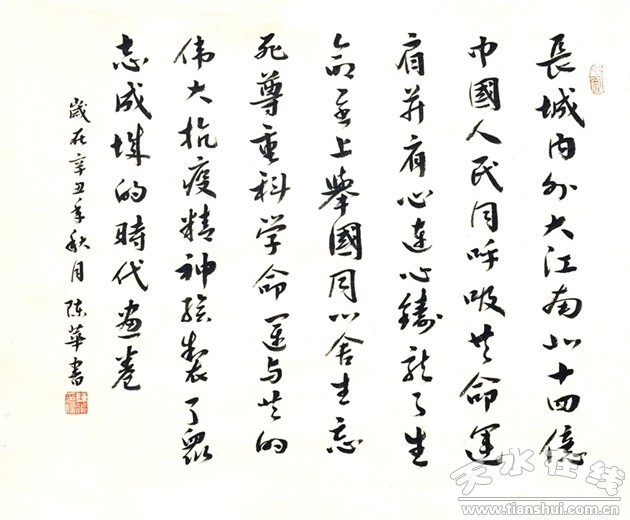 長城内外大江南北十四億
中國人民同呼吸共命運
肩并肩心連心鑄就了生
命至上舉國同心舍生忘
死尊重科学命運与共的
伟大抗疫精神绘製了眾
志成城的時代画卷
歲在辛丑年秋月陈華書
天水在线
www.tianshui.com.cn